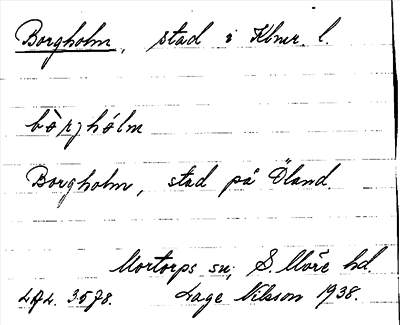 Borgholm, stad i Klmr. l.
bòrjhólm
Borgholm, stad på Öland.
Mortorps sn, S. Möre hd.
3578. Lage Nilsson 1938.